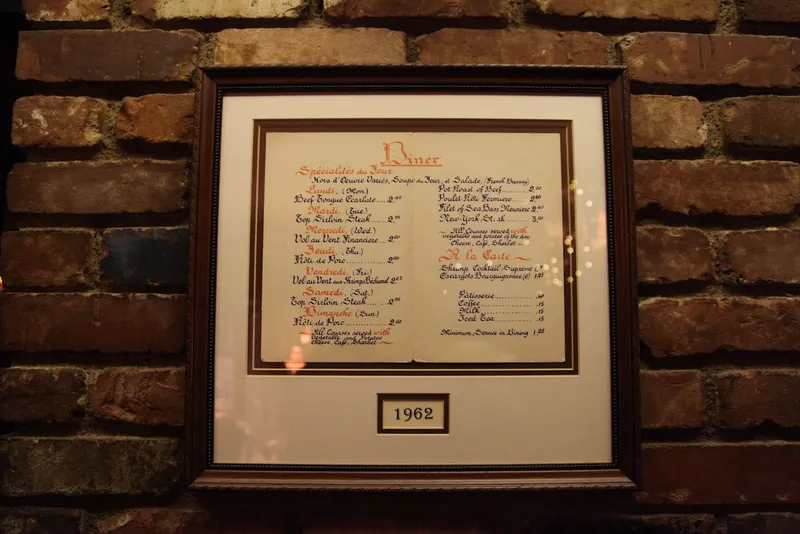 Diner
Spécialités du Jour
Hors d'Oeuvre Variés, Soupe du Jour, et Salade, (French Dressing)
Lundi, (Mon.)
Beef Tongue Ecarlate....
Mardi, (Tue.)
Top Sirloin Steak....
Mercredi, (Wed.)
Vol au Vent Financiere....
Jeudi, (Thu.)
Rôti de Porc........
Vendredi, (Fri.)
Vol au Vent aux Shrimps
Samedi, (Sat.)
Top Sirloin Steak.....
Dimanche (Sun.)
Rôti de Porc..........
All Courses served with
Vegetable and Potatoe
Cheese, Café, Sherbet
Pot Roast of Beef.......
Poulet Rôti Fermiere....
Filet of Sea Bass Meuniere
New York St
All Courses served with
vegetable and potatoe of the day
Cheese, Café, Sherbet
A la Carte
Shrimp Cocktail Supreme
Escargots Bourguignonne (6) 1.25
Pâtisserie............
Coffee............ .15
Milk............ .15
Iced Tea.......... .15
Minimum Service in Dining 1.25
1962